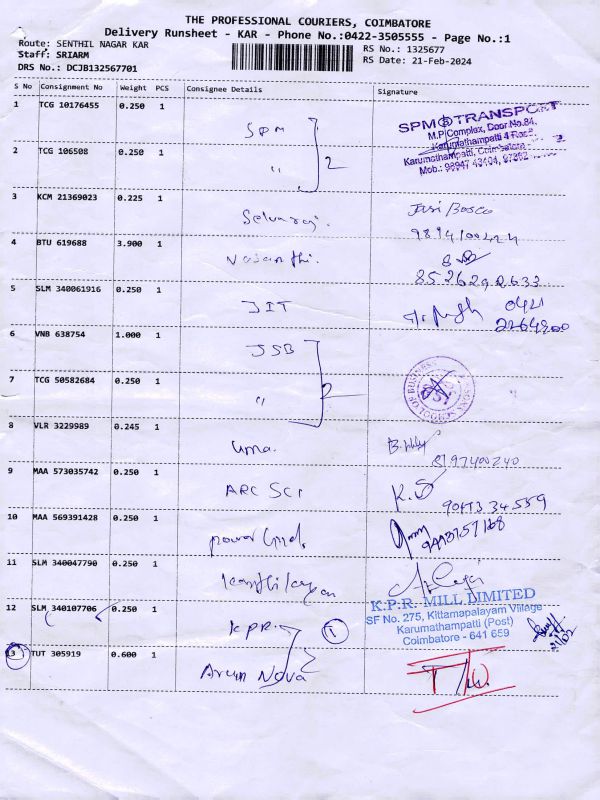 THE PROFESSIONAL COURIERS, COIMBATORE
Delivery Runsheet - KAR - Phone No.:0422-3505555 - Page No.:1
Route: SENTHIL NAGAR KAR RS No.: 1325677
Staff: SRIARM RS Date: 21-Feb-2024
DRS No.: DCJB132567701
S No Consignment No Weight PCS Consignee Details Signature
1 TCG 10176455 0.250 1 SPM
SPM TRANSPORT
M.P Complex, Door No.84,
Karumathampatti
Karumathampatti, Coimbatore
Mob.: 98947 43404,
2 TCG 106508 0.250 1 " 2
3 KCM 21369023 0.225 1 Selvaraj. Bosco
4 BTU 619688 3.900 1 Vasanthi.
5 SLM 340061916 0.250 1 JIT 0421
2264900
6 VNB 638754 1.000 1 JSB
7 TCG 50582684 0.250 1 " 2
SCHOOL OF BUSINESS
8 VLR 3229989 0.245 1 Uma.
9 MAA 573035742 0.250 1 ARC SCI K.S
10 MAA 569391428 0.250 1 power
11 SLM 340047790 0.250 1
12 SLM 340107706 0.250 1 KPR 1
K.P.R. MILL LIMITED
SF No. 275, Kittampalayam Village
Karumathampatti (Post)
Coimbatore - 641 659
13 TUT 305919 0.600 1 Arun Nova